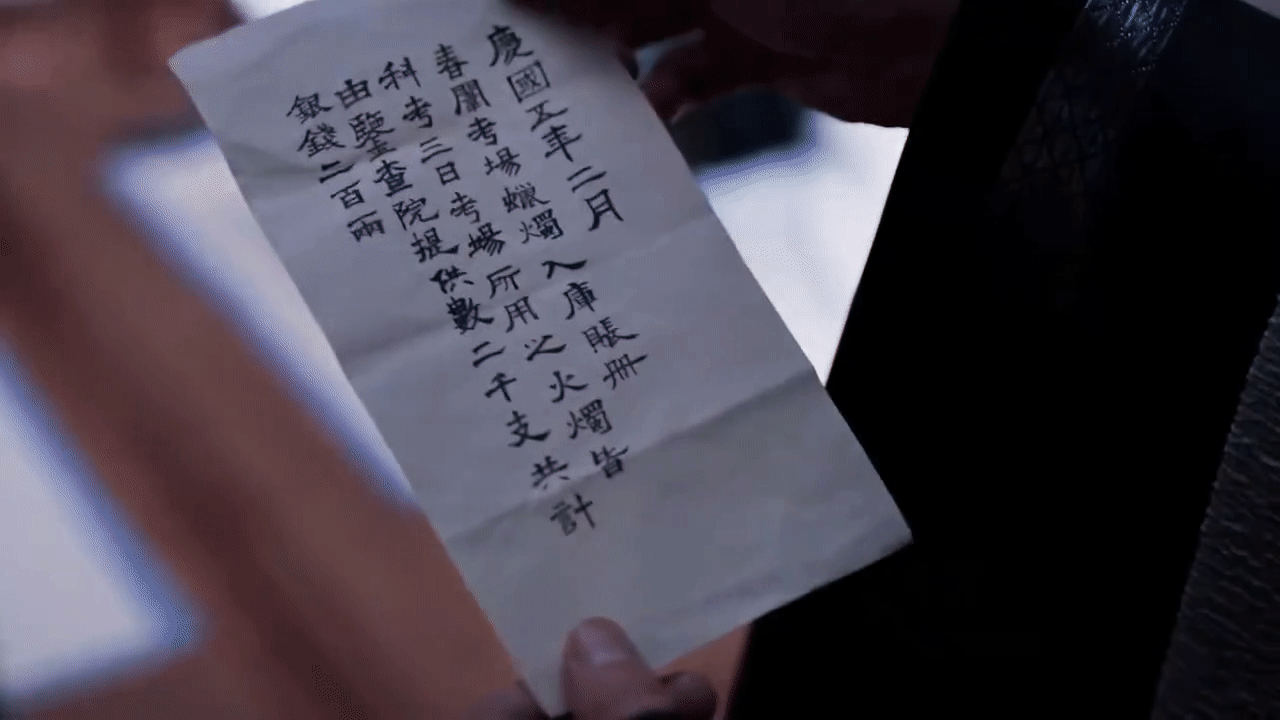 慶國五年二月
春闈考場蠟燭入庫賬冊
科考三日考場所用之火燭皆
由鑒查院提供數二千支共計
銀錢二百兩